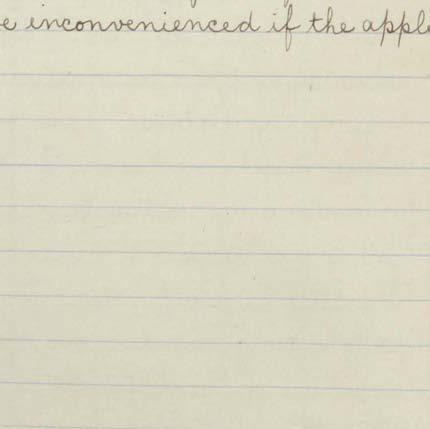 e inconvenienced if the apple